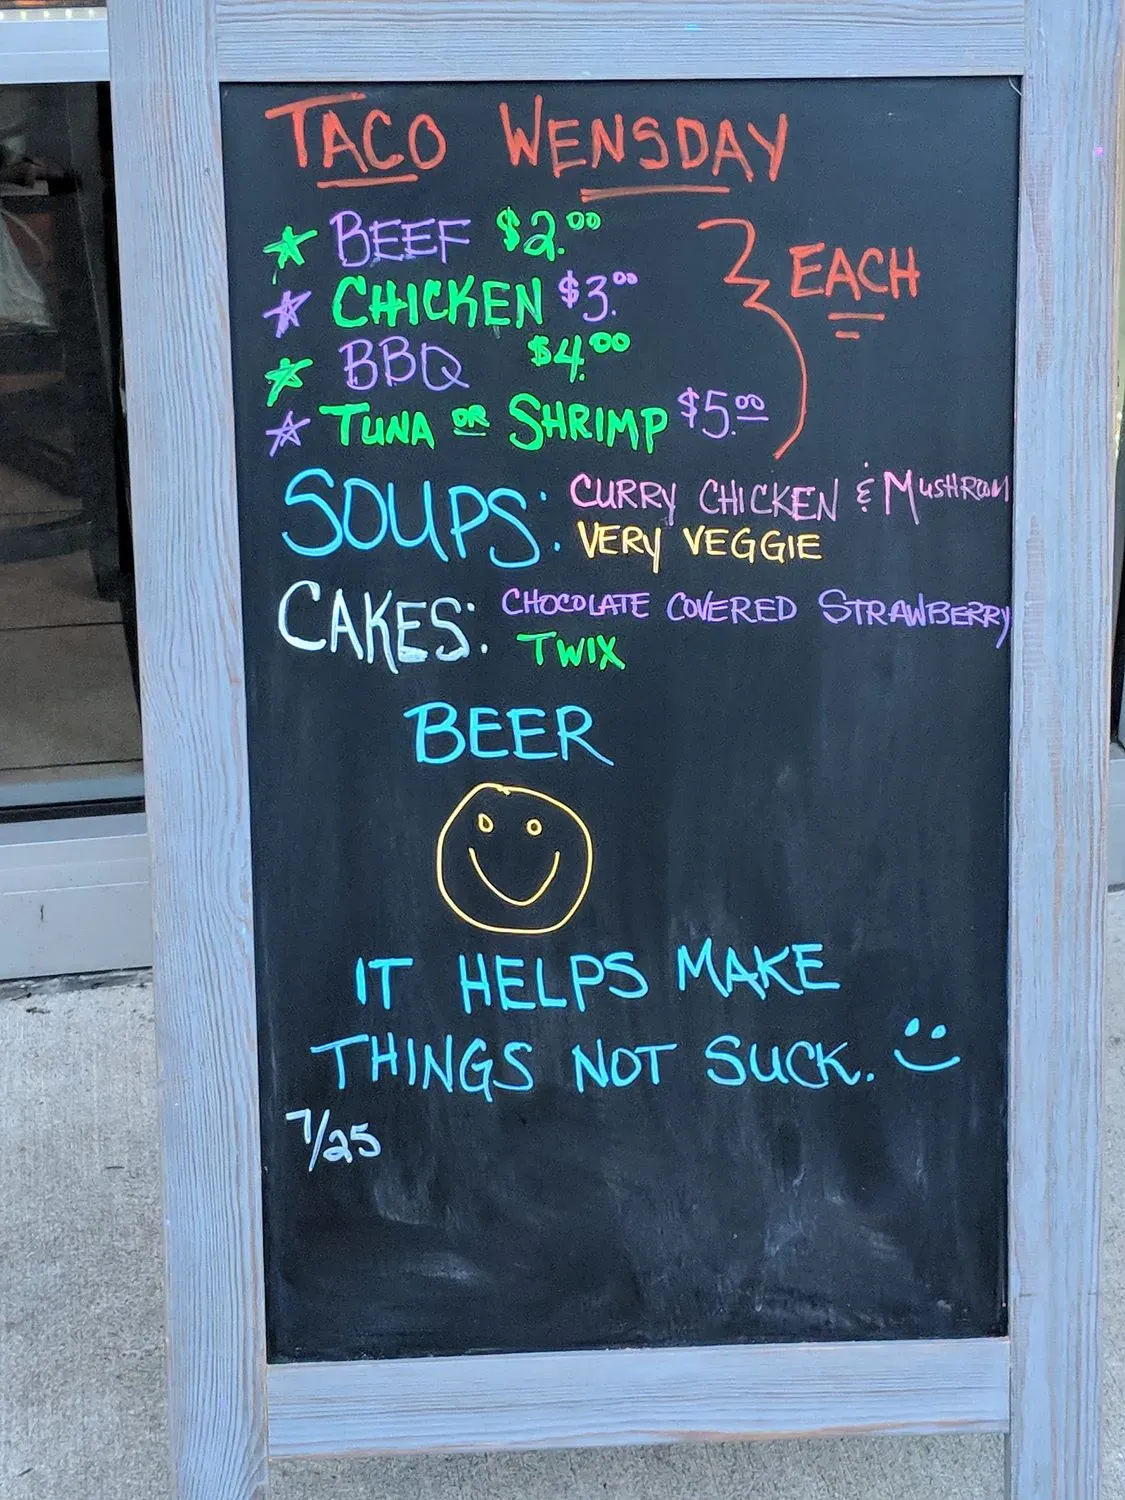 TACO WENSDAY
BEEF $2.00
CHICKEN $3.00
BBQ $4.00
TUNA OR SHRIMP $5.00
EACH
SOUPS: CURRY CHICKEN & MUSHROOM
VERY VEGGIE
CAKES: CHOCOLATE COVERED STRAWBERRY
TWIX
BEER
IT HELPS MAKE
THINGS NOT SUCK.
7/25